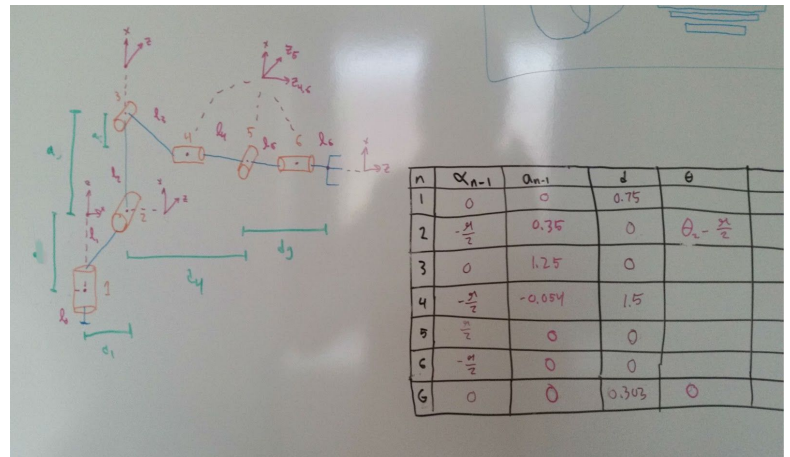 x
z
x
z5
z4,6
3
l3
4
l4
5
l5
6
l6
x
z
a
l2
z
x
x
z
2
l1
1
d4
dg
l0
a1
n αn-1 an-1 d θ
1 0 0 0.75
2 -π/2 0.35 0 θ2 - π/2
3 0 1.25 0
4 -π/2 -0.054 1.5
5 π/2 0 0
6 -π/2 0 0
G 0 0 0.303 0